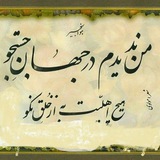 من ندیدم در جهان جستجو
هیچ اهلیت به از خلق نکو